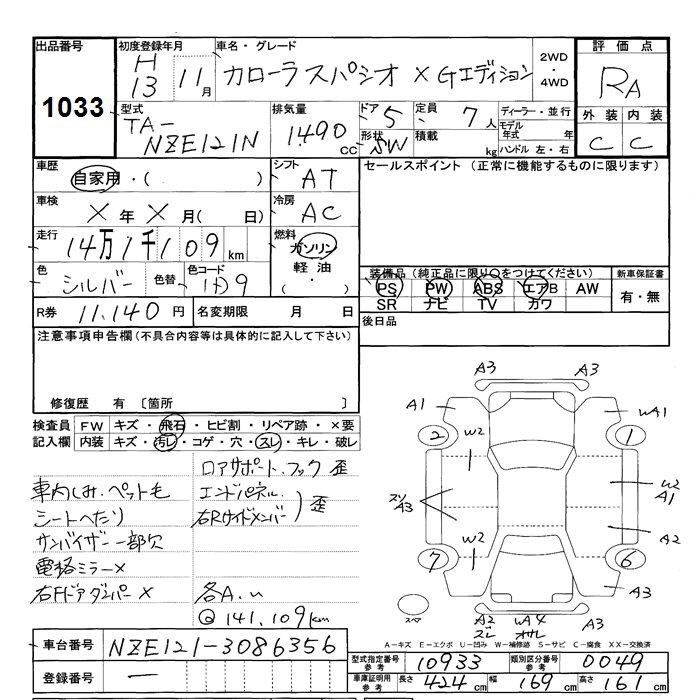 出品番号
1033
初度登録年月
H
13 11月
車名・グレード
カローラスパシオ XGエディション
2WD
・
4WD
評価点
RA
外装 内装
C C
型式
TA-
NZE121N
排気量
1490 CC
ドア 5
形状 SW
定員 7人
積載 kg
ディーラー・並行
モデル年式 年
ハンドル 左・右
車歴
自家用・( )
シフト
AT
セールスポイント (正常に機能するものに限ります)
車検
X年X月( 日)
冷房
AC
走行
14万1千109km
燃料
ガソリン
軽油
( ・ )
色
シルバー
色替
色コード
1D9
装備品(純正品に限り○をつけてください)
PS PW ABS エアB AW
SR ナビ TV カワ
新車保証書
有・無
R券 11,140円
名変期限 月 日
後日品
注意事項申告欄(不具合内容等は具体的に記入して下さい)
修復歴 有 〔箇所 〕
検査員 FW キズ・飛石・ヒビ割・リペア跡・×要
記入欄 内装 キズ・汚レ・コゲ・穴・スレ・キレ・破レ
ロアサポート.フック 歪
車内しみ.ペット毛
エンドパネル.
右Rサイドメンバー) 歪
シートへたり
サンバイザー一部欠
電格ミラー×
右Fドアダンパー×
各A.u
@ 141,109km
A3 A3
A1 WA1
2 1
W2
スリ
A3
W2
A1
A2
W2
7 6
A3
スペア
A2 WA4
ズレ
A3
A-キズ E-エクボ U-凹み W-補修跡 S-サビ C-腐食 XX-交換済
車台番号 NZE121-3086356
登録番号 -
型式指定番号
参考
10933
類別区分番号
参考
0049
車庫証明用
参考
長さ 424cm 幅 169cm 高さ 161cm